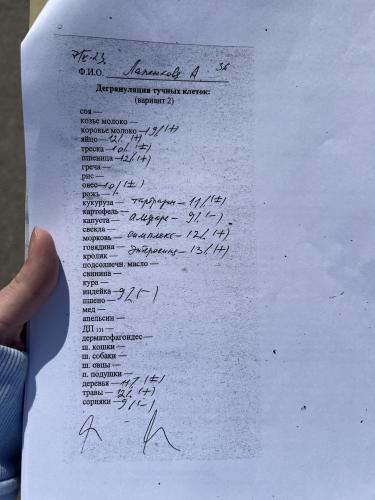 Ф.И.О. Лапенкова А. 3л
Дегрануляция тучных клеток:
(вариант 2)
соя —
козье молоко —
коровье молоко — 19% (+)
яйцо — 12% (+)
треска — 10% (±)
пшеница — 12% (+)
греча —
рис —
овес — 10% (±)
рожь —
кукуруза — 11% (±)
картофель —
капуста — 9% (-)
свекла —
морковь — симплекс — 12% (+)
говядина — 13% (+)
кролик —
подсолнечн. масло —
свинина —
кура —
индейка —
пшено — 9% (-)
мед —
апельсин —
ДП
дерматофагоидес —
ш. кошки —
ш. собаки —
ш. овцы —
п. подушки —
деревья — 11% (±)
травы — 12% (+)
сорняки — 9% (-)